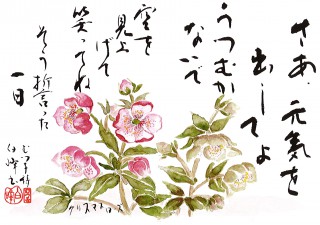 さあ、元気を
出してよ
うつむか
ないで
空を
見上
げて
笑ってね
そう誓った
一日
クリスマスローズ